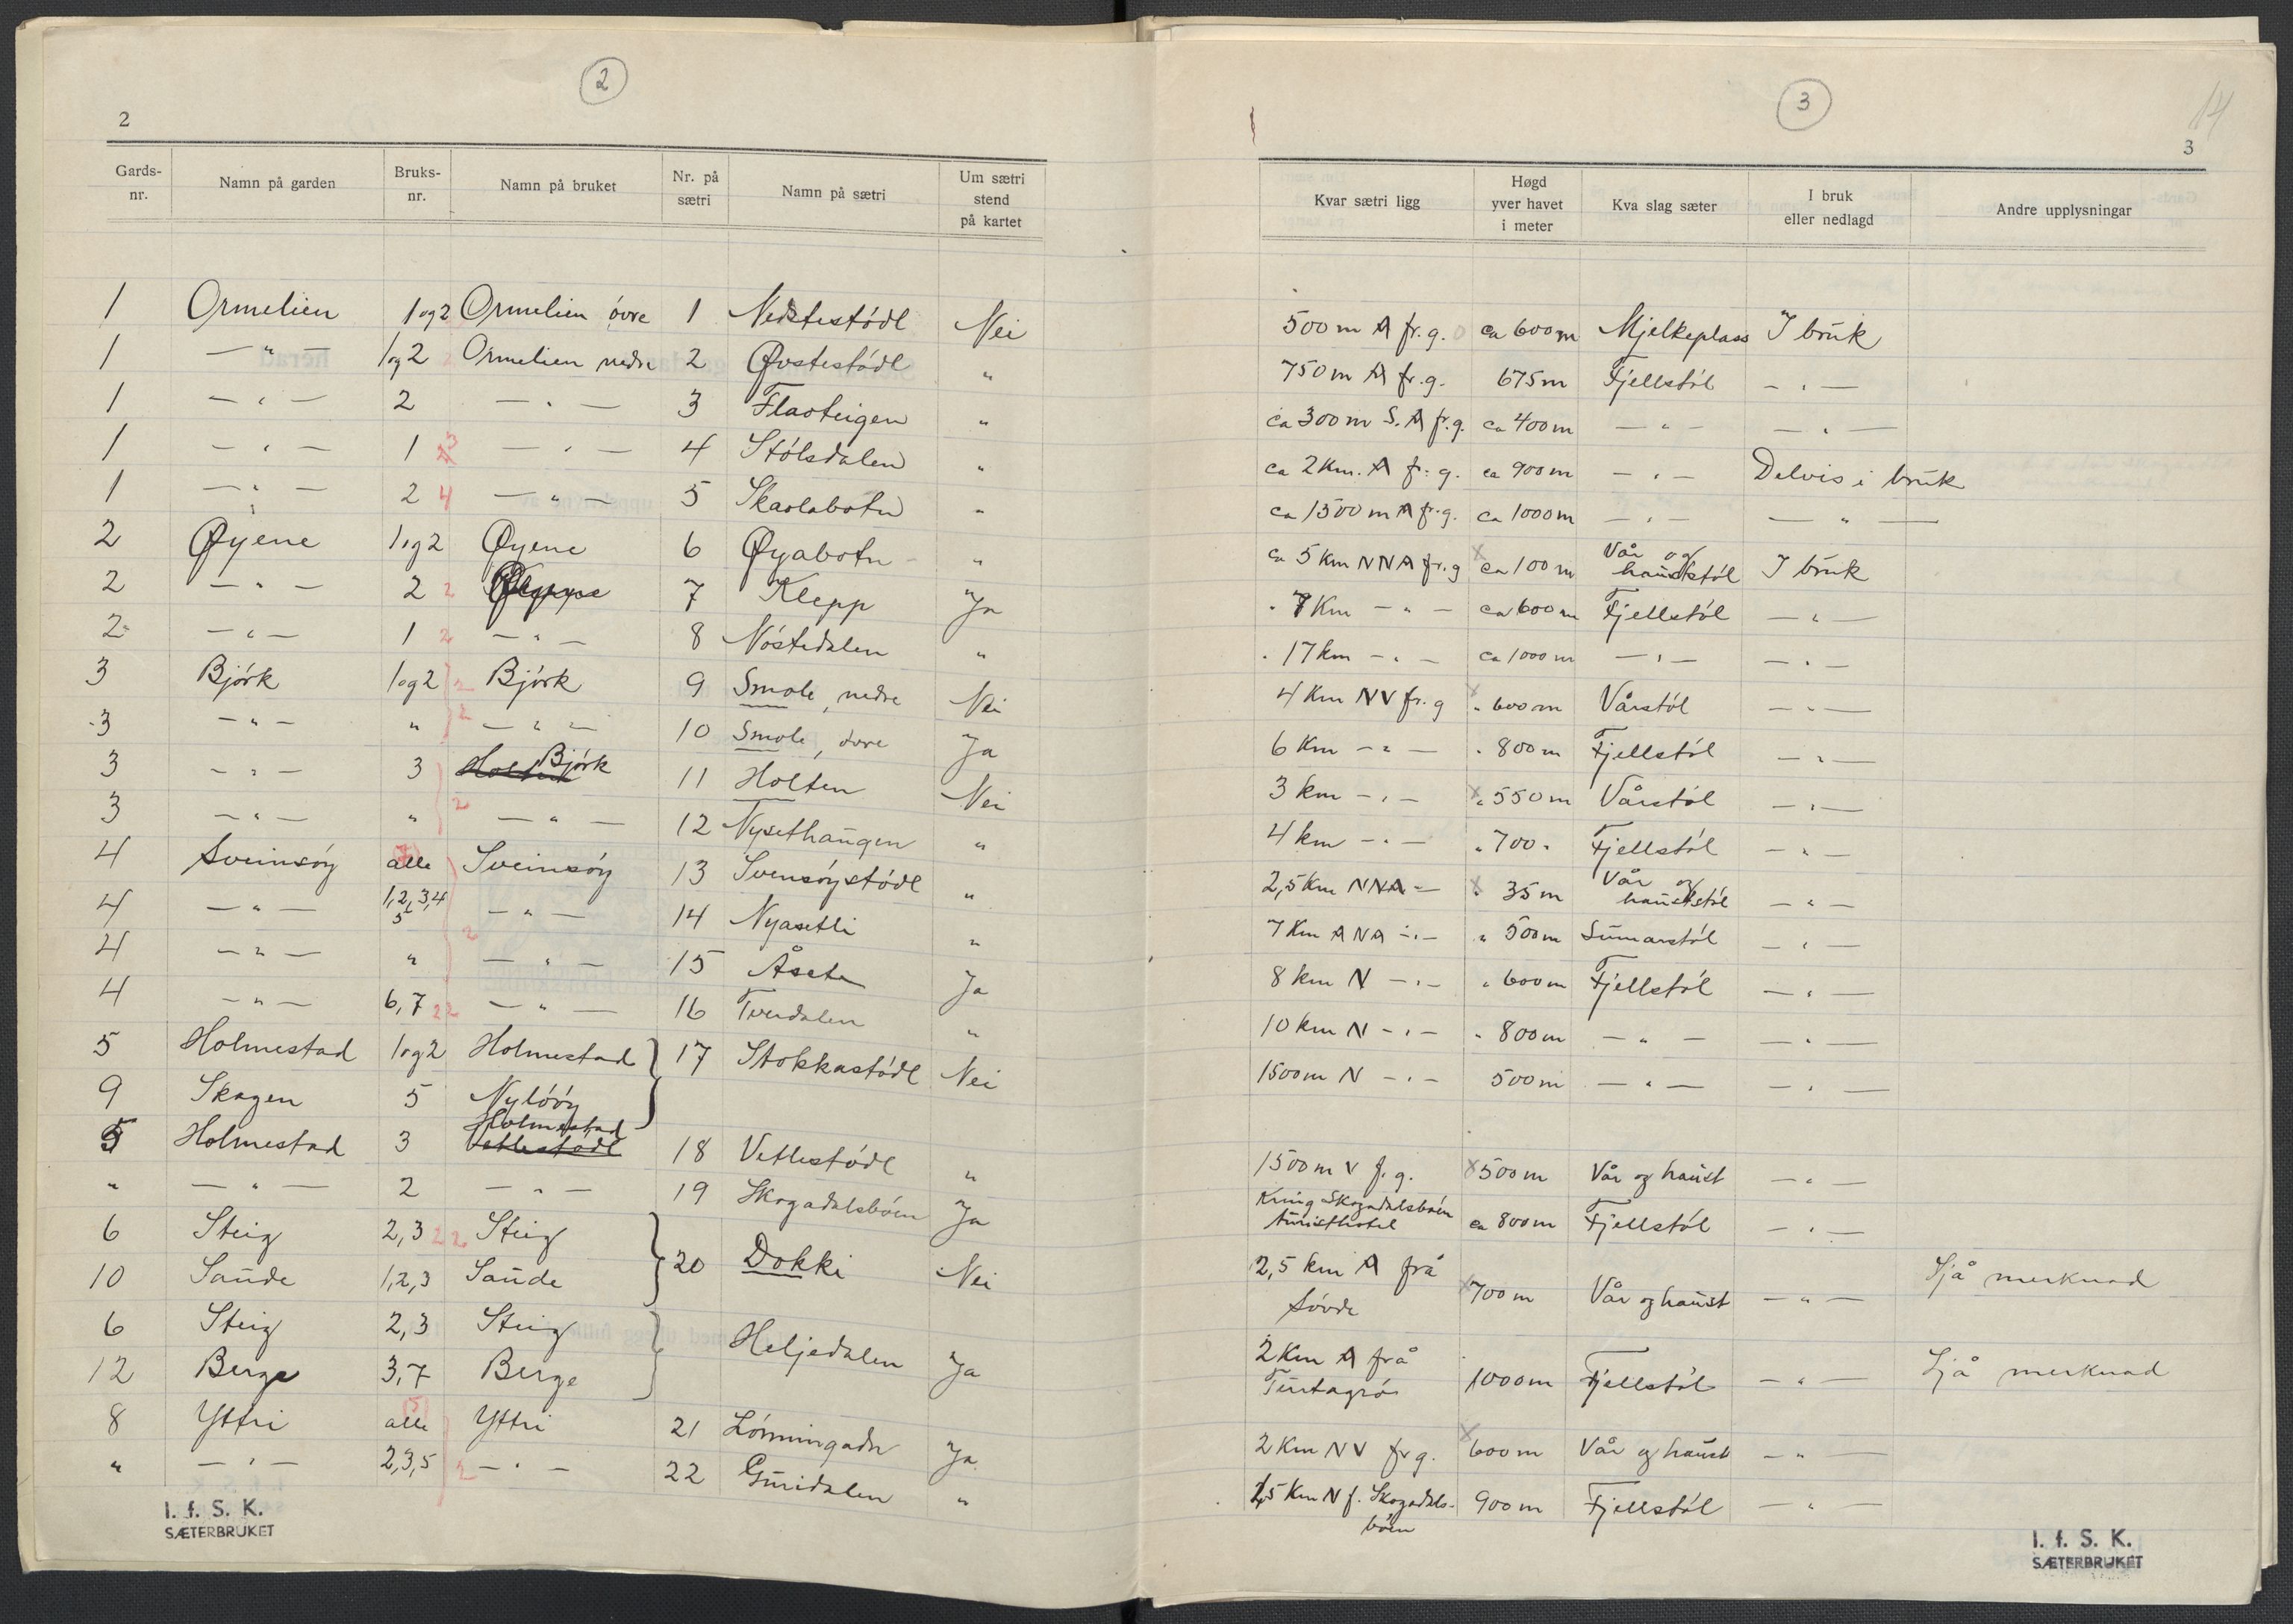 2
2
Gards-nr. Namn på garden Bruks-nr. Namn på bruket Nr. på sætri Namn på sætri Um sætri stend på kartet
1 Ormelien 1 og 2 Ormelien övre 1 Nedstestödl Nei
1 — " — 1 og 2 Ormelien nedre 2 Øvstestödl "
1 — " — 2 — " — 3 Flaoteigen "
1 — " — 1 3 — " — 4 Stölsdalen "
1 — " — 2 4 — " — 5 Skaolabotn "
2 Øyene 1 og 2 Øyene 6 Øyabotn "
2 — " — 2 2 7 Klepp Ja
2 — " — 1 2 — " — 8 Nöstedalen "
3 Björk 1 og 2 2 Björk 9 Smole, nedre Nei
3 — " — " 2 — " — 10 Smole, övre Ja
3 — " — 3 Holten Björk 11 Holten Nei
3 — " — " 2 — " — 12 Nysethaugen "
4 Sveinsöy alle (7) Sveinsöy 13 Svensöystödl "
4 — " — 1,2,3,4 5 — " — 14 Nyasetli "
4 — " — " 2 — " — 15 Åsete Ja
4 — " — 6,7 22 — " — 16 Tverdalen "
5 Holmestad 1 og 2 Holmestad } 17 Stokkastödl Nei
9 Skagen 5 Nylööy
5 Holmestad 3 Holmestad Vetlestödl 18 Vetlestödl "
" — " — 2 — " — 19 Skogadalsböen Ja
6 Steig 2,3 22 Steig } 20 Dokki Nei
10 Sande 1,2,3 Sande
6 Steig 2,3 Steig } Heljedalen Ja
12 Berge 3,7 Berge
8 Yttri alle (5) Yttri 21 Lönningadn Ja
" — " — 2,3,5 2 — " — 22 Guridalen "
I. f. S. K.
SÆTERBRUKET
3
14
3
Kvar sætri ligg Høgd yver havet i meter Kva slag sæter I bruk eller nedlagd Andre upplysningar
500 m A fr. g. ca 600 m Mjelkeplass I bruk
750 m A fr. g. 675 m Fjellstöl — " —
ca 300 m S. A fr. g. ca 400 m — " — — " —
ca 2 Km. A fr. g. ca 900 m — " — Delvis i bruk
ca 1500 m A fr. g. ca 1000 m — " — — " —
ca 5 Km NNA fr. g x ca 100 m Vår og hauststöl I bruk
" 7 Km — " — ca 600 m Fjellstöl — " —
" 17 km — " — ca 1000 m — " — — " —
4 Km NV fr. g x " 600 m Vårstöl — " —
6 Km — " — " 800 m Fjellstöl — " —
3 km — " — x " 550 m Vårstöl — " —
4 km — " — " 700 " Fjellstöl — " —
2,5 Km NNA — x " 35 m Vår og hauststöl — " —
7 Km ANA — " — " 500 m Sumarstöl — " —
8 km N — " — " 600 m Fjellstöl — " —
10 km N — " — " 800 m — " — — " —
1500 m N — " — 500 m — " — — " —
1500 m V f. g. x 500 m Vår og haust — " —
Kring Skogadalsböen turisthotel ca 800 m Fjellstöl — " —
2,5 km A frå Sövde x 700 m Vår og haust — " — Sjå merknad
2 Km A frå 1000 m Fjellstöl — " — Sjå merknad
2 Km NV fr g. x 600 m Vår og haust — " —
1,5 Km N f. Skogadalsböen 900 m Fjellstöl — " —
I. f. S. K.
SÆTERBRUKET